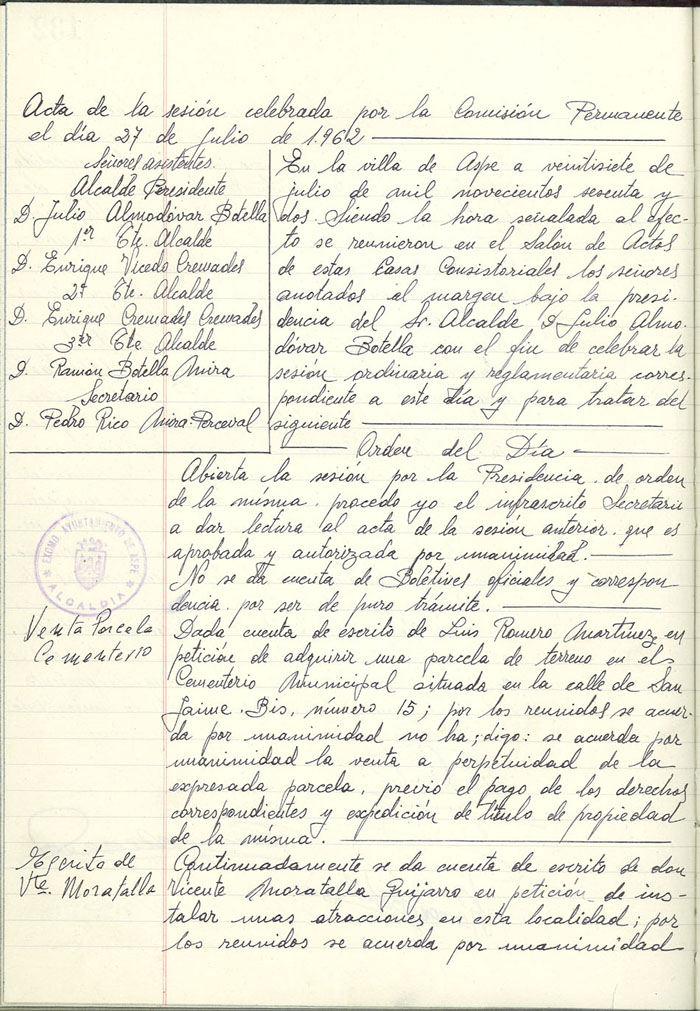 Acta de la sesión celebrada por la Comisión Permanente
el día 27 de Julio de 1.962
Señores asistentes.
Alcalde Presidente
D. Julio Almodóvar Botella
1er Tte. Alcalde
D. Enrique Vicedo Cremades
2º Tte. Alcalde
D. Enrique Cremades Cremades
3er Tte Alcalde
D. Ramón Botella Mira
Secretario
D. Pedro Rico Mira-Perceval
En la villa de Aspe a veintisiete de
julio de mil novecientos sesenta y
dos. Siendo la hora señalada al efec-
to se reunieron en el Salón de Actos
de estas Casas Consistoriales los señores
anotados al margen bajo la presi-
dencia del Sr. Alcalde D. Julio Almo-
dóvar Botella con el fin de celebrar la
sesión ordinaria y reglamentaria corres-
pondiente a este día y para tratar del
siguiente
Orden del Día
Abierta la sesión por la Presidencia, de orden
de la misma, procedo yo el infrascrito Secretario
a dar lectura al acta de la sesión anterior, que es
aprobada y autorizada por unanimidad.
No se dá cuenta de Boletines oficiales y correspon
dencia, por ser de puro trámite.
EXCMO. AYUNTAMIENTO DE ASPE
ALCALDIA
Venta Parcela
Cementerio
Dada cuenta de escrito de Luis Romero Martínez, en
petición de adquirir una parcela de terreno en el
Cementerio Municipal situada en la calle de San
Jaime, Bis, número 15; por los reunidos se acuer-
da por unanimidad no ha; digo: se acuerda por
unanimidad la venta a perpetuidad de la
expresada parcela, previo el pago de los derechos
correspondientes y expedición de título de propiedad
de la misma.
Escrito de
Vte. Moratalla
Continuadamente se da cuenta de escrito de don
Vicente Moratalla Guijarro en petición de ins-
talar unas atracciones en esta localidad; por
los reunidos se acuerda por unanimidad